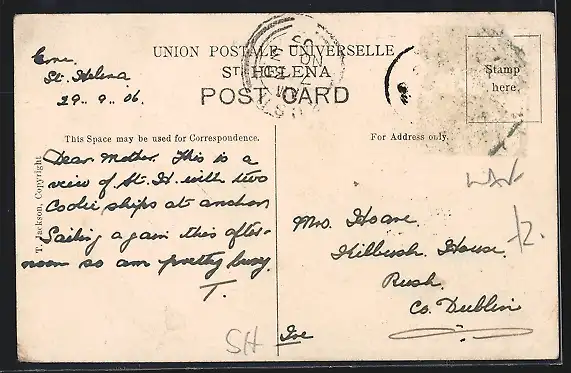 UNION POSTALE UNIVERSELLE
ST. HELENA
POST CARD
Stamp
here.
St. Helena
29. 9. 06.
This Space may be used for Correspondence.
For Address only.
T. Jackson, Copyright
Dear Mother. This is a
view of St. H. with two
Coolie ships at anchor
Sailing again this after-
noon so am pretty busy.
T.
Mrs. Hoare.
Kilbush House.
Rush.
Co. Dublin
Ire
SH